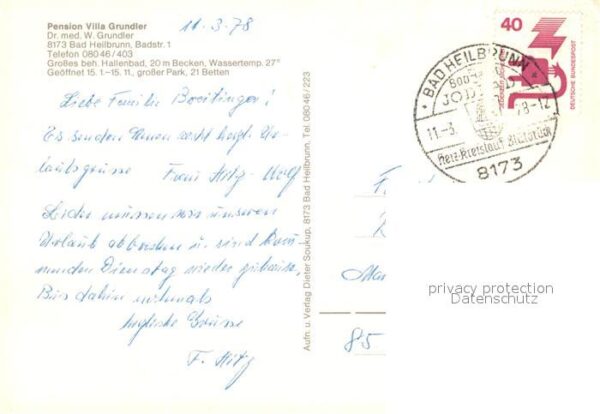 Pension Villa Grundler
Dr. med. W. Grundler
8173 Bad Heilbrunn, Badstr. 1
Telefon 080 46 / 403
Großes beh. Hallenbad, 20 m Becken, Wassertemp. 27°
Geöffnet 15. 1.–15. 11., großer Park, 21 Betten
11.3.78
Liebe Familie
Es senden Ihnen recht herzl. Ur-
laubsgrüsse Fam. Hitz-Wolf
Leider müssen wir unseren
Urlaub abbrechen u. sind kom-
menden Dienstag wieder zuhause.
Bis dahin nochmals
herzliche Grüsse
F. Hitz
Aufn. u. Verlag Dieter Soukup, 8173 Bad Heilbrunn, Tel. 080 46 / 223
40
DEUTSCHE BUNDESPOST
BAD HEILBRUNN
11.-3. 78-12
Herz-Kreislauf Blutdruck
8173
85
privacy protection
Datenschutz